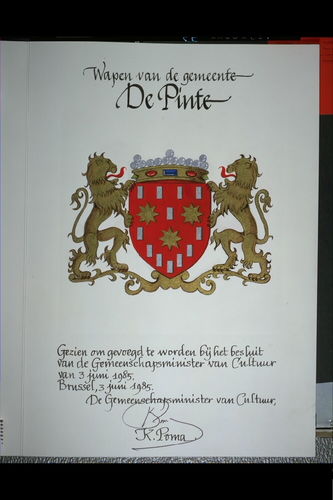 Wapen van de gemeente
De Pinte
Gezien om gevoegd te worden bij het besluit
van de Gemeenschapsminister van Cultuur
van 3 juni 1985.
Brussel, 3 juni 1985.
De Gemeenschapsminister van Cultuur,
K. Poma